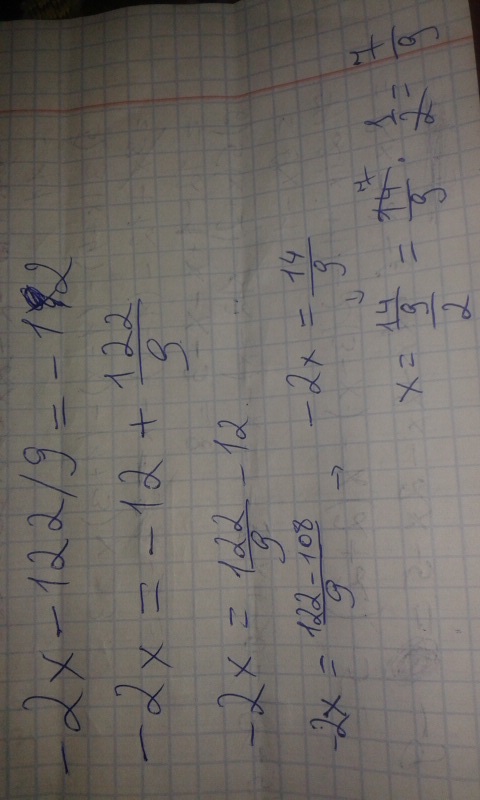 -2x - 122/9 = -12
-2x = -12 + 122/9
-2x = 122/9 - 12
-2x = (122-108)/9 → -2x = 14/9 →
x = (14/9)/2 = 14/9 · 1/2 = 7/9